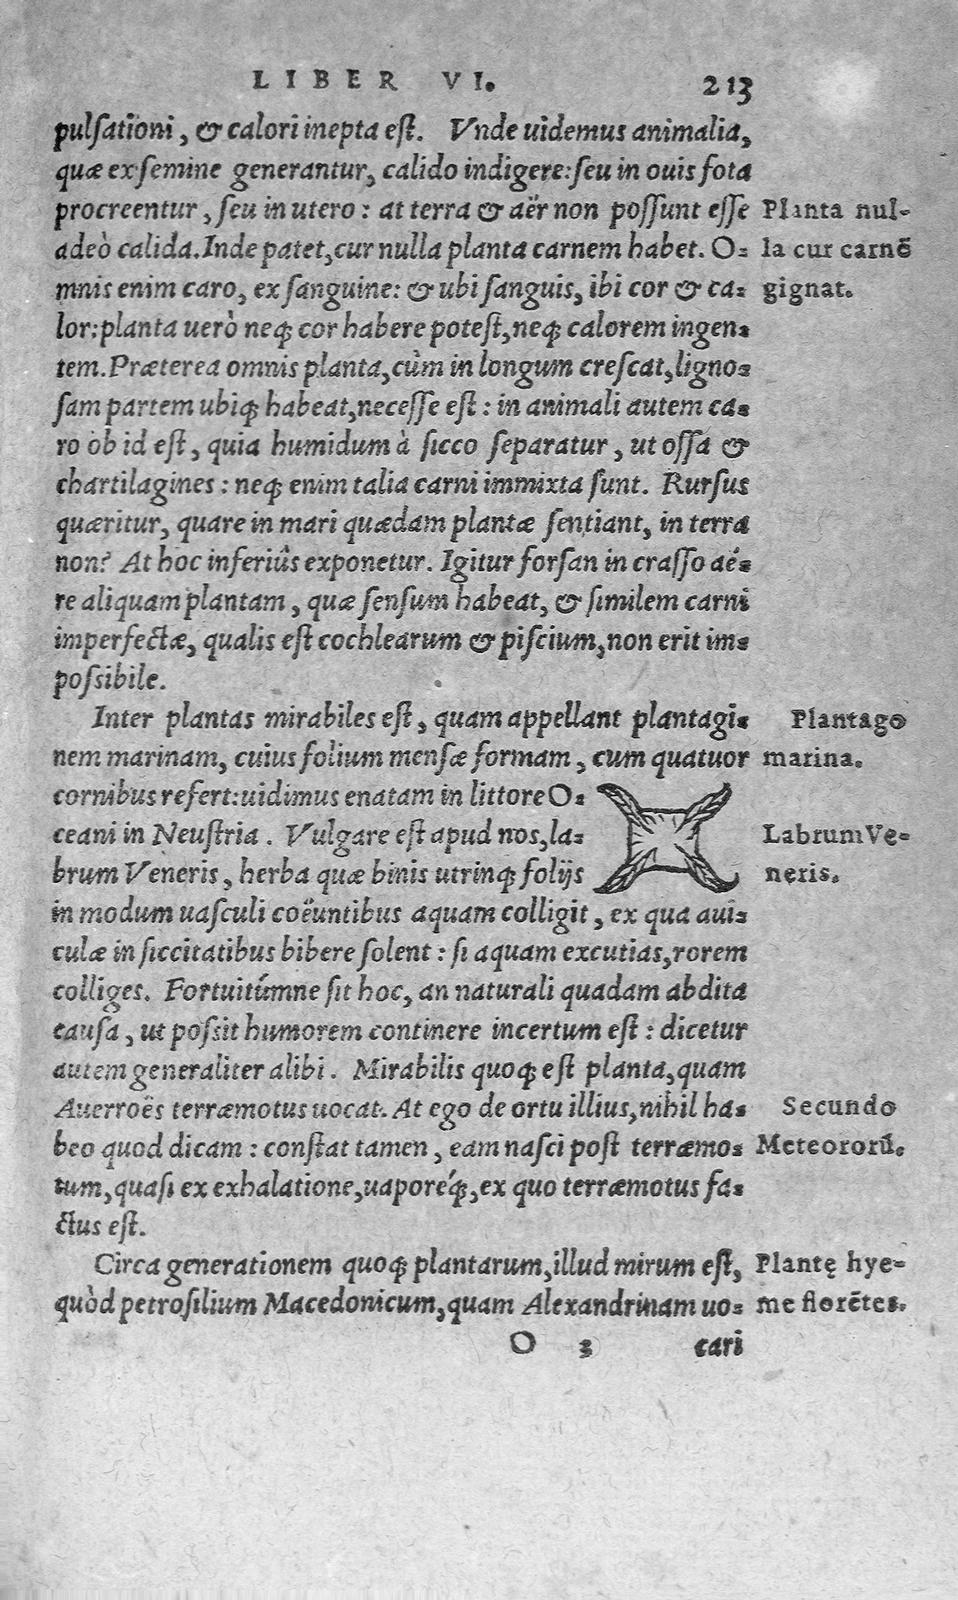 LIBER VI. 213
pulsationi, & calori inepta est. Vnde uidemus animalia,
quæ ex semine generantur, calido indigere: seu in ouis fota
procreentur, seu in utero: at terra & aër non possunt esse
Planta nul-
adeò calida. Inde patet, cur nulla planta carnem habet. O-
la cur carnē
mnis enim caro, ex sanguine: & ubi sanguis, ibi cor & ca-
gignat.
lor: planta uerò neq; cor habere potest, neq; calorem ingen-
tem. Præterea omnis planta, cùm in longum crescat, ligno-
sam partem ubiq; habeat, necesse est: in animali autem ca-
ro ob id est, quia humidum à sicco separatur, ut ossa &
chartilagines: neq; enim talia carni immixta sunt. Rursus
quæritur, quare in mari quædam plantæ sentiant, in terra
non? At hoc inferiùs exponetur. Igitur forsan in crasso aë-
re aliquam plantam, quæ sensum habeat, & similem carni
imperfectæ, qualis est cochlearum & piscium, non erit im-
possibile.
Inter plantas mirabiles est, quam appellant plantagi-
Plantago
nem marinam, cuius folium mensæ formam, cum quatuor
marina.
cornibus refert: uidimus enatam in littore O-
ceani in Neustria. Vulgare est apud nos, la-
Labrum Ve-
brum Veneris, herba quæ binis utrinq; folijs
neris.
in modum uasculi coëuntibus aquam colligit, ex qua aui-
culæ in siccitatibus bibere solent: si aquam excutias, rorem
colliges. Fortuitúmne sit hoc, an naturali quadam abdita
causa, ut possit humorem continere incertum est: dicetur
autem generaliter alibi. Mirabilis quoq; est planta, quam
Auerroës terræmotus uocat. At ego de ortu illius, nihil ha-
Secundo
beo quod dicam: constat tamen, eam nasci post terræmo-
Meteororū.
tum, quasi ex exhalatione, uaporeq́;, ex quo terræmotus fa-
ctus est.
Circa generationem quoq; plantarum, illud mirum est,
Plantę hye-
quòd petrosilium Macedonicum, quam Alexandrinam uo-
me florētes.
O 3 cari